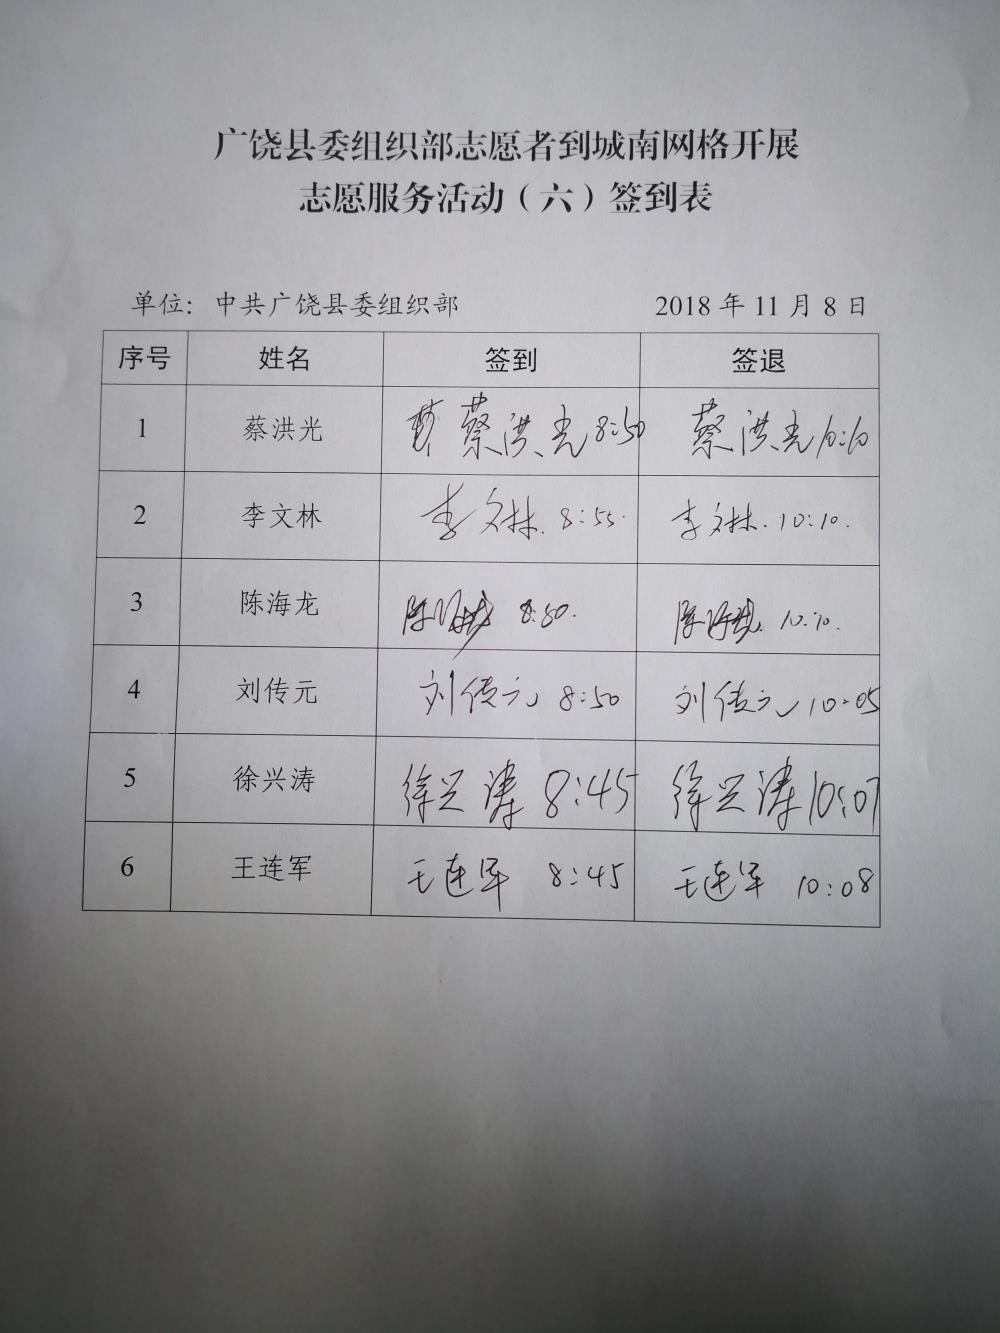 广饶县委组织部志愿者到城南网格开展
志愿服务活动（六）签到表
单位：中共广饶县委组织部 2018 年 11 月 8 日
序号 姓名 签到 签退
1 蔡洪光 蔡洪光 8:50 蔡洪光 10:10
2 李文林 李文林. 8:55. 李文林. 10:10.
3 陈海龙 陈海龙 8:50. 陈海龙. 10:10.
4 刘传元 刘传元 8:50 刘传元 10:05
5 徐兴涛 徐兴涛 8:45 徐兴涛 10:07
6 王连军 王连军 8:45 王连军 10:08